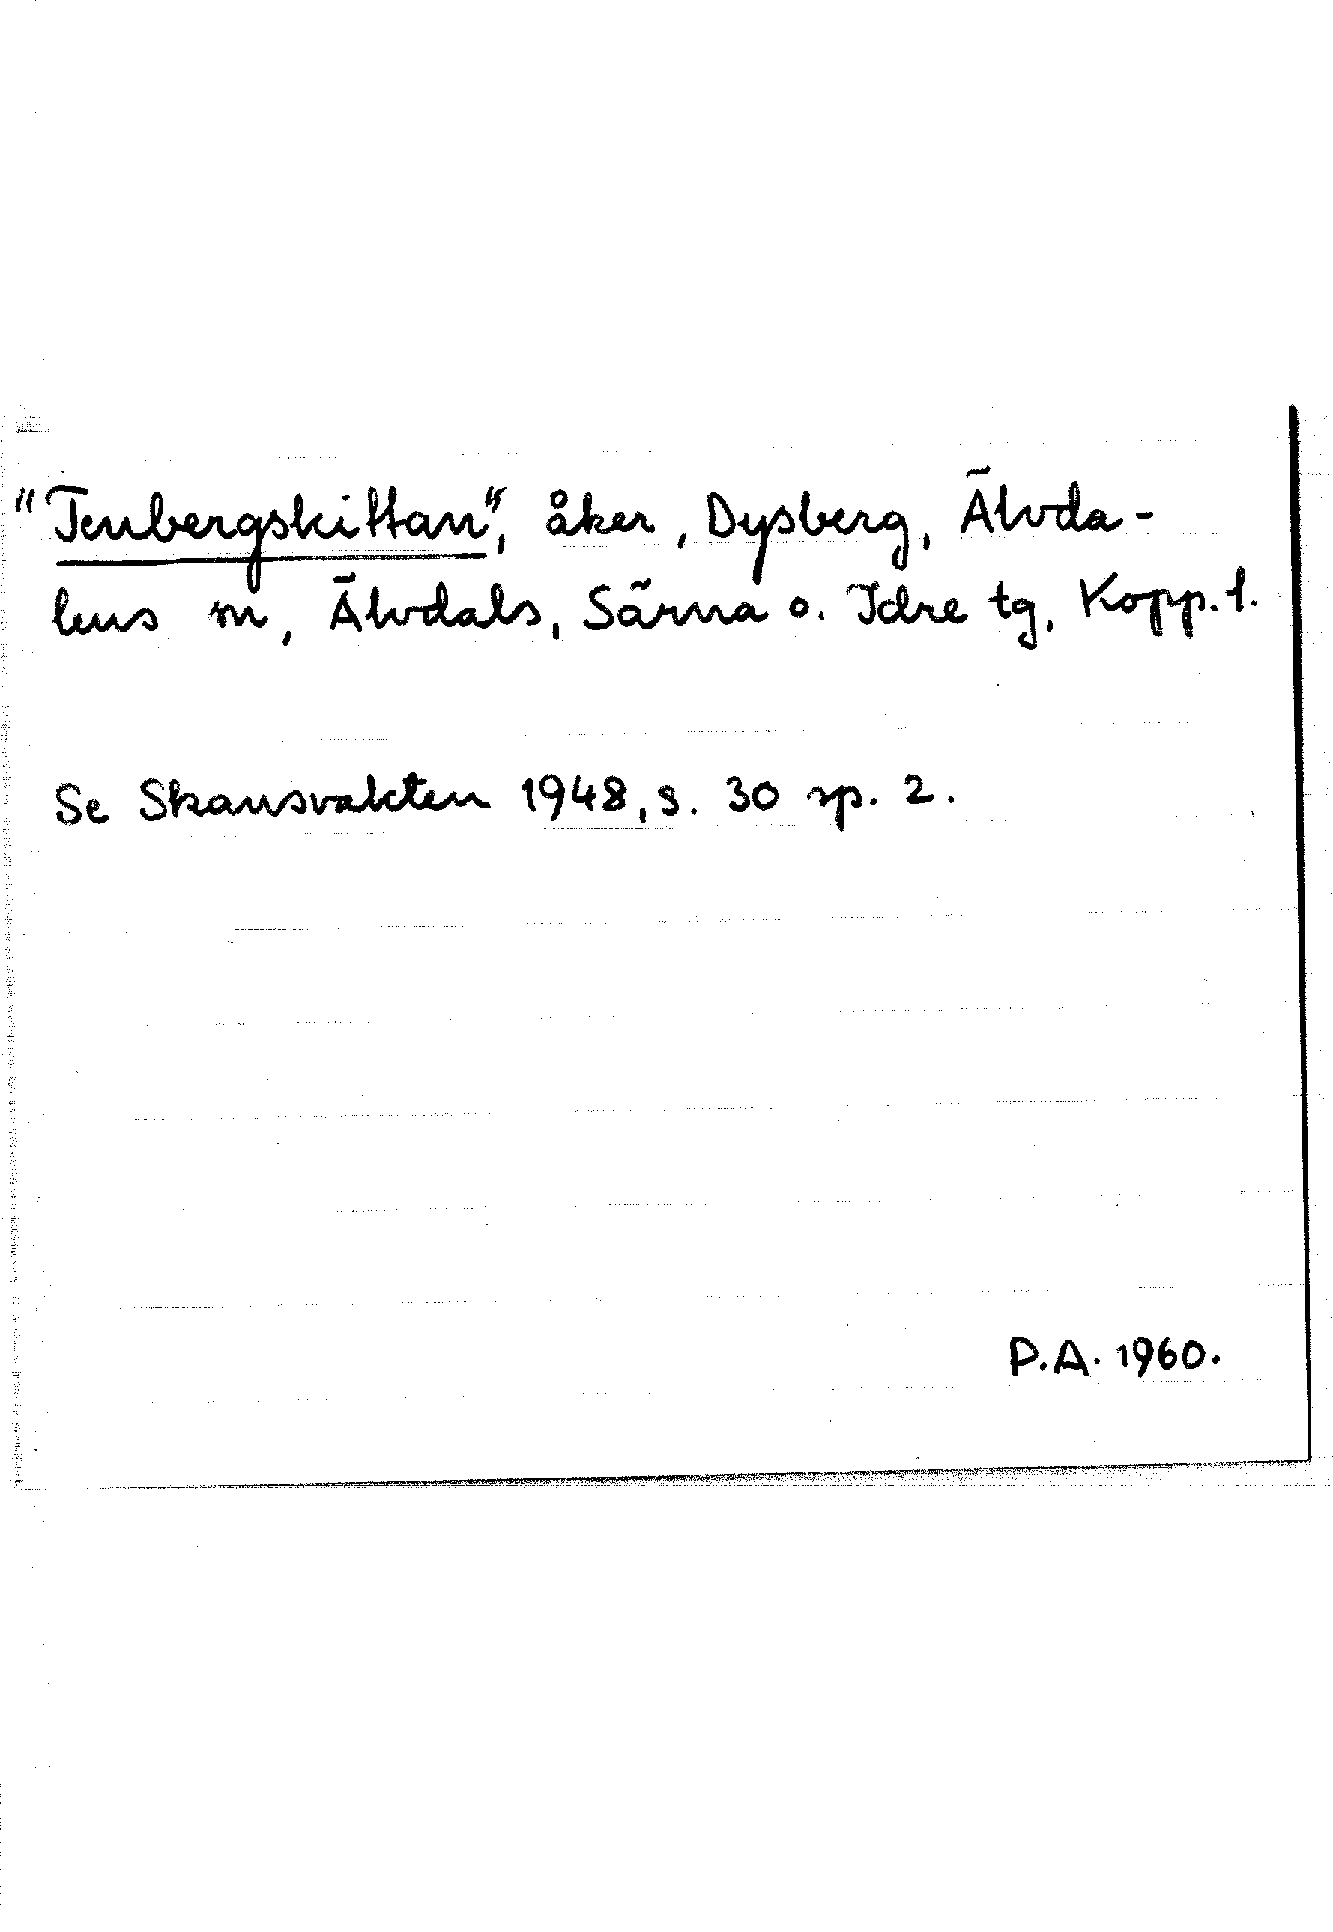 "Tenbergskittan", åker, Dysberg, Älvda-
lens m, Älvdals, Särna o. Idre tg, Kopp. l.
Se Skansvakten 1948, s. 30 sp. 2.
P.A. 1960.